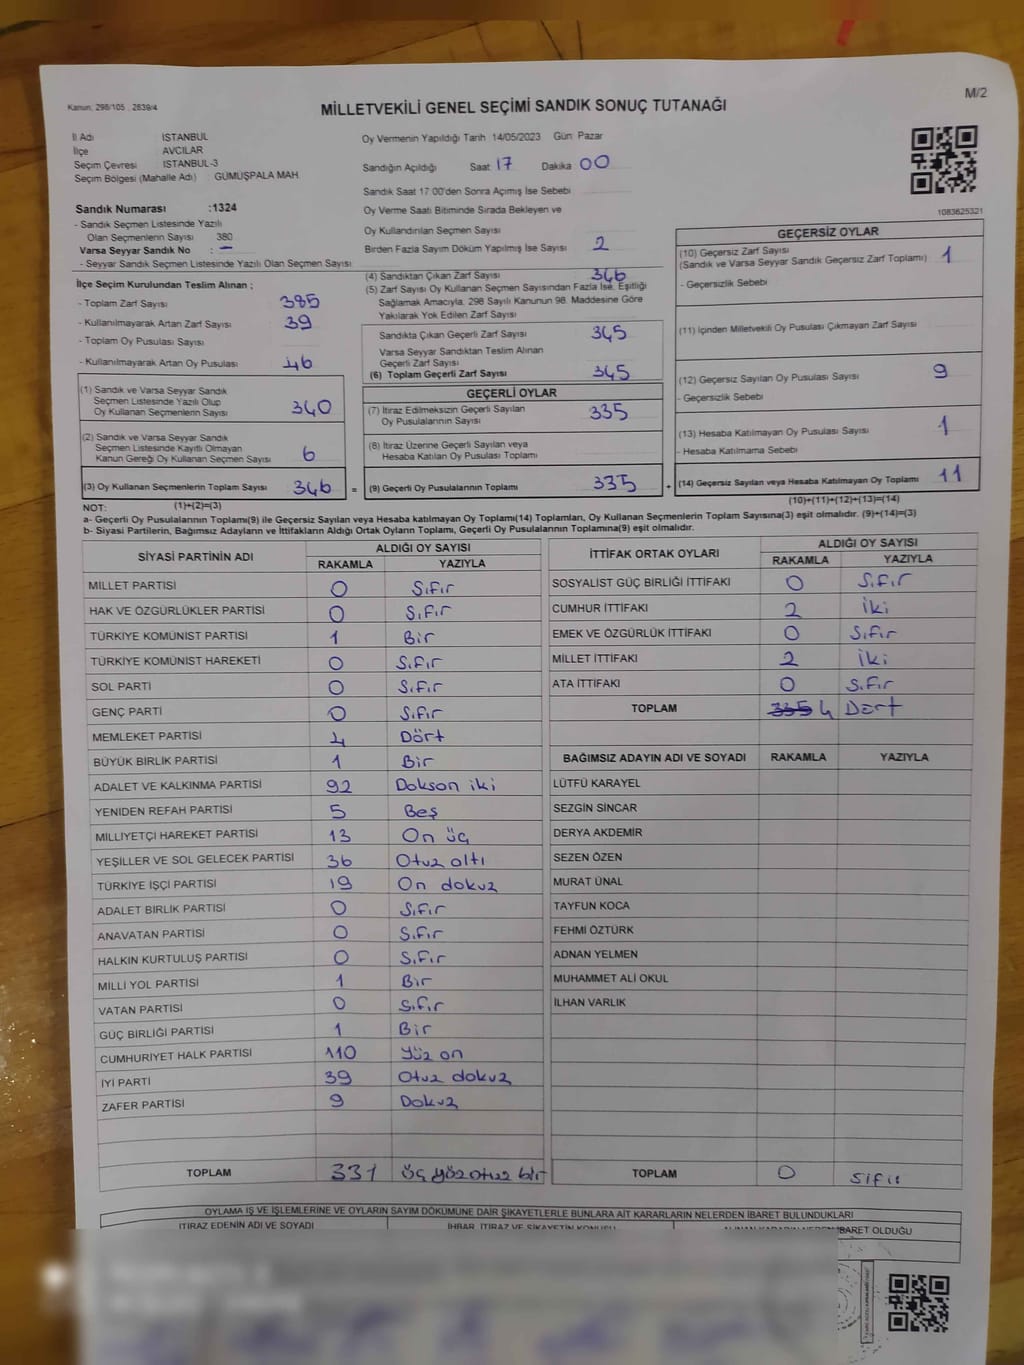 Kanun: 298/105 , 2839/4
M/2
MİLLETVEKİLİ GENEL SEÇİMİ SANDIK SONUÇ TUTANAĞI
İl Adı İSTANBUL
İlçe AVCILAR
Seçim Çevresi İSTANBUL-3
Seçim Bölgesi (Mahalle Adı) : GÜMÜŞPALA MAH.
Sandık Numarası :1324
- Sandık Seçmen Listesinde Yazılı
Olan Seçmenlerin Sayısı 380
Varsa Seyyar Sandık No : –
- Seyyar Sandık Seçmen Listesinde Yazılı Olan Seçmen Sayısı
İlçe Seçim Kurulundan Teslim Alınan ;
- Toplam Zarf Sayısı 385
- Kullanılmayarak Artan Zarf Sayısı 39
- Toplam Oy Pusulası Sayısı
- Kullanılmayarak Artan Oy Pusulası 46
(1) Sandık ve Varsa Seyyar Sandık
Seçmen Listesinde Yazılı Olup
Oy Kullanan Seçmenlerin Sayısı 340
(2) Sandık ve Varsa Seyyar Sandık
Seçmen Listesinde Kayıtlı Olmayan
Kanun Gereği Oy Kullanan Seçmen Sayısı 6
(3) Oy Kullanan Seçmenlerin Toplam Sayısı 346 =
(1)+(2)=(3)
Oy Vermenin Yapıldığı Tarih 14/05/2023 Gün Pazar
Sandığın Açıldığı Saat 17 Dakika 00
Sandık Saat 17:00'den Sonra Açımış İse Sebebi
Oy Verme Saati Bitiminde Sırada Bekleyen ve
Oy Kullandırılan Seçmen Sayısı
Birden Fazla Sayım Döküm Yapılmış İse Sayısı 2
(4) Sandıktan Çıkan Zarf Sayısı 346
(5) Zarf Sayısı Oy Kullanan Seçmen Sayısından Fazla İse, Eşitliği
Sağlamak Amacıyla, 298 Sayılı Kanunun 98. Maddesine Göre
Yakılarak Yok Edilen Zarf Sayısı
Sandıkta Çıkan Geçerli Zarf Sayısı 345
Varsa Seyyar Sandıktan Teslim Alınan
Geçerli Zarf Sayısı
(6) Toplam Geçerli Zarf Sayısı 345
GEÇERLİ OYLAR
(7) İtiraz Edilmeksizin Geçerli Sayılan
Oy Pusulalarının Sayısı 335
(8) İtiraz Üzerine Geçerli Sayılan veya
Hesaba Katılan Oy Pusulası Toplamı
(9) Geçerli Oy Pusulalarının Toplamı 335 +
1083625321
GEÇERSİZ OYLAR
(10) Geçersiz Zarf Sayısı
(Sandık ve Varsa Seyyar Sandık Geçersiz Zarf Toplamı) 1
- Geçersizlik Sebebi
(11) İçinden Milletvekili Oy Pusulası Çıkmayan Zarf Sayısı
(12) Geçersiz Sayılan Oy Pusulası Sayısı 9
- Geçersizlik Sebebi
(13) Hesaba Katılmayan Oy Pusulası Sayısı 1
- Hesaba Katılmama Sebebi
(14) Geçersiz Sayılan veya Hesaba Katılmayan Oy Toplamı 11
(10)+(11)+(12)+(13)=(14)
NOT:
a- Geçerli Oy Pusulalarının Toplamı(9) ile Geçersiz Sayılan veya Hesaba katılmayan Oy Toplamı(14) Toplamları, Oy Kullanan Seçmenlerin Toplam Sayısına(3) eşit olmalıdır. (9)+(14)=(3)
b- Siyasi Partilerin, Bağımsız Adayların ve İttifakların Aldığı Ortak Oyların Toplamı, Geçerli Oy Pusulalarının Toplamına(9) eşit olmalıdır.
SİYASİ PARTİNİN ADI ALDIĞI OY SAYISI
RAKAMLA YAZIYLA
MİLLET PARTİSİ 0 Sıfır
HAK VE ÖZGÜRLÜKLER PARTİSİ 0 Sıfır
TÜRKİYE KOMÜNİST PARTİSİ 1 Bir
TÜRKİYE KOMÜNİST HAREKETİ 0 Sıfır
SOL PARTİ 0 Sıfır
GENÇ PARTİ 0 Sıfır
MEMLEKET PARTİSİ 4 Dört
BÜYÜK BİRLİK PARTİSİ 1 Bir
ADALET VE KALKINMA PARTİSİ 92 Dokson iki
YENİDEN REFAH PARTİSİ 5 Beş
MİLLİYETÇİ HAREKET PARTİSİ 13 On üç
YEŞİLLER VE SOL GELECEK PARTİSİ 36 Otuz altı
TÜRKİYE İŞÇİ PARTİSİ 19 On dokuz
ADALET BİRLİK PARTİSİ 0 Sıfır
ANAVATAN PARTİSİ 0 Sıfır
HALKIN KURTULUŞ PARTİSİ 0 Sıfır
MİLLİ YOL PARTİSİ 1 Bir
VATAN PARTİSİ 0 Sıfır
GÜÇ BİRLİĞİ PARTİSİ 1 Bir
CUMHURİYET HALK PARTİSİ 110 Yüz on
İYİ PARTİ 39 Otuz dokuz
ZAFER PARTİSİ 9 Dokuz
TOPLAM 331 üç yüz otuz bir
İTTİFAK ORTAK OYLARI ALDIĞI OY SAYISI
RAKAMLA YAZIYLA
SOSYALİST GÜÇ BİRLİĞİ İTTİFAKI 0 Sıfır
CUMHUR İTTİFAKI 2 İki
EMEK VE ÖZGÜRLÜK İTTİFAKI 0 Sıfır
MİLLET İTTİFAKI 2 İki
ATA İTTİFAKI 0 Sıfır
TOPLAM 335 4 Dört
BAĞIMSIZ ADAYIN ADI VE SOYADI RAKAMLA YAZIYLA
LÜTFÜ KARAYEL
SEZGİN SİNCAR
DERYA AKDEMİR
SEZEN ÖZEN
MURAT ÜNAL
TAYFUN KOCA
FEHMİ ÖZTÜRK
ADNAN YELMEN
MUHAMMET ALİ OKUL
İLHAN VARLIK
TOPLAM 0 Sıfır
OYLAMA İŞ VE İŞLEMLERİNE VE OYLARIN SAYIM DÖKÜMÜNE DAİR ŞİKAYETLERLE BUNLARA AİT KARARLARIN NELERDEN İBARET BULUNDUKLARI
İTİRAZ EDENİN ADI VE SOYADI İHBAR, İTİRAZ VE ŞİKAYETİN KONUSU ALINAN KARARIN NEDEN İBARET OLDUĞU